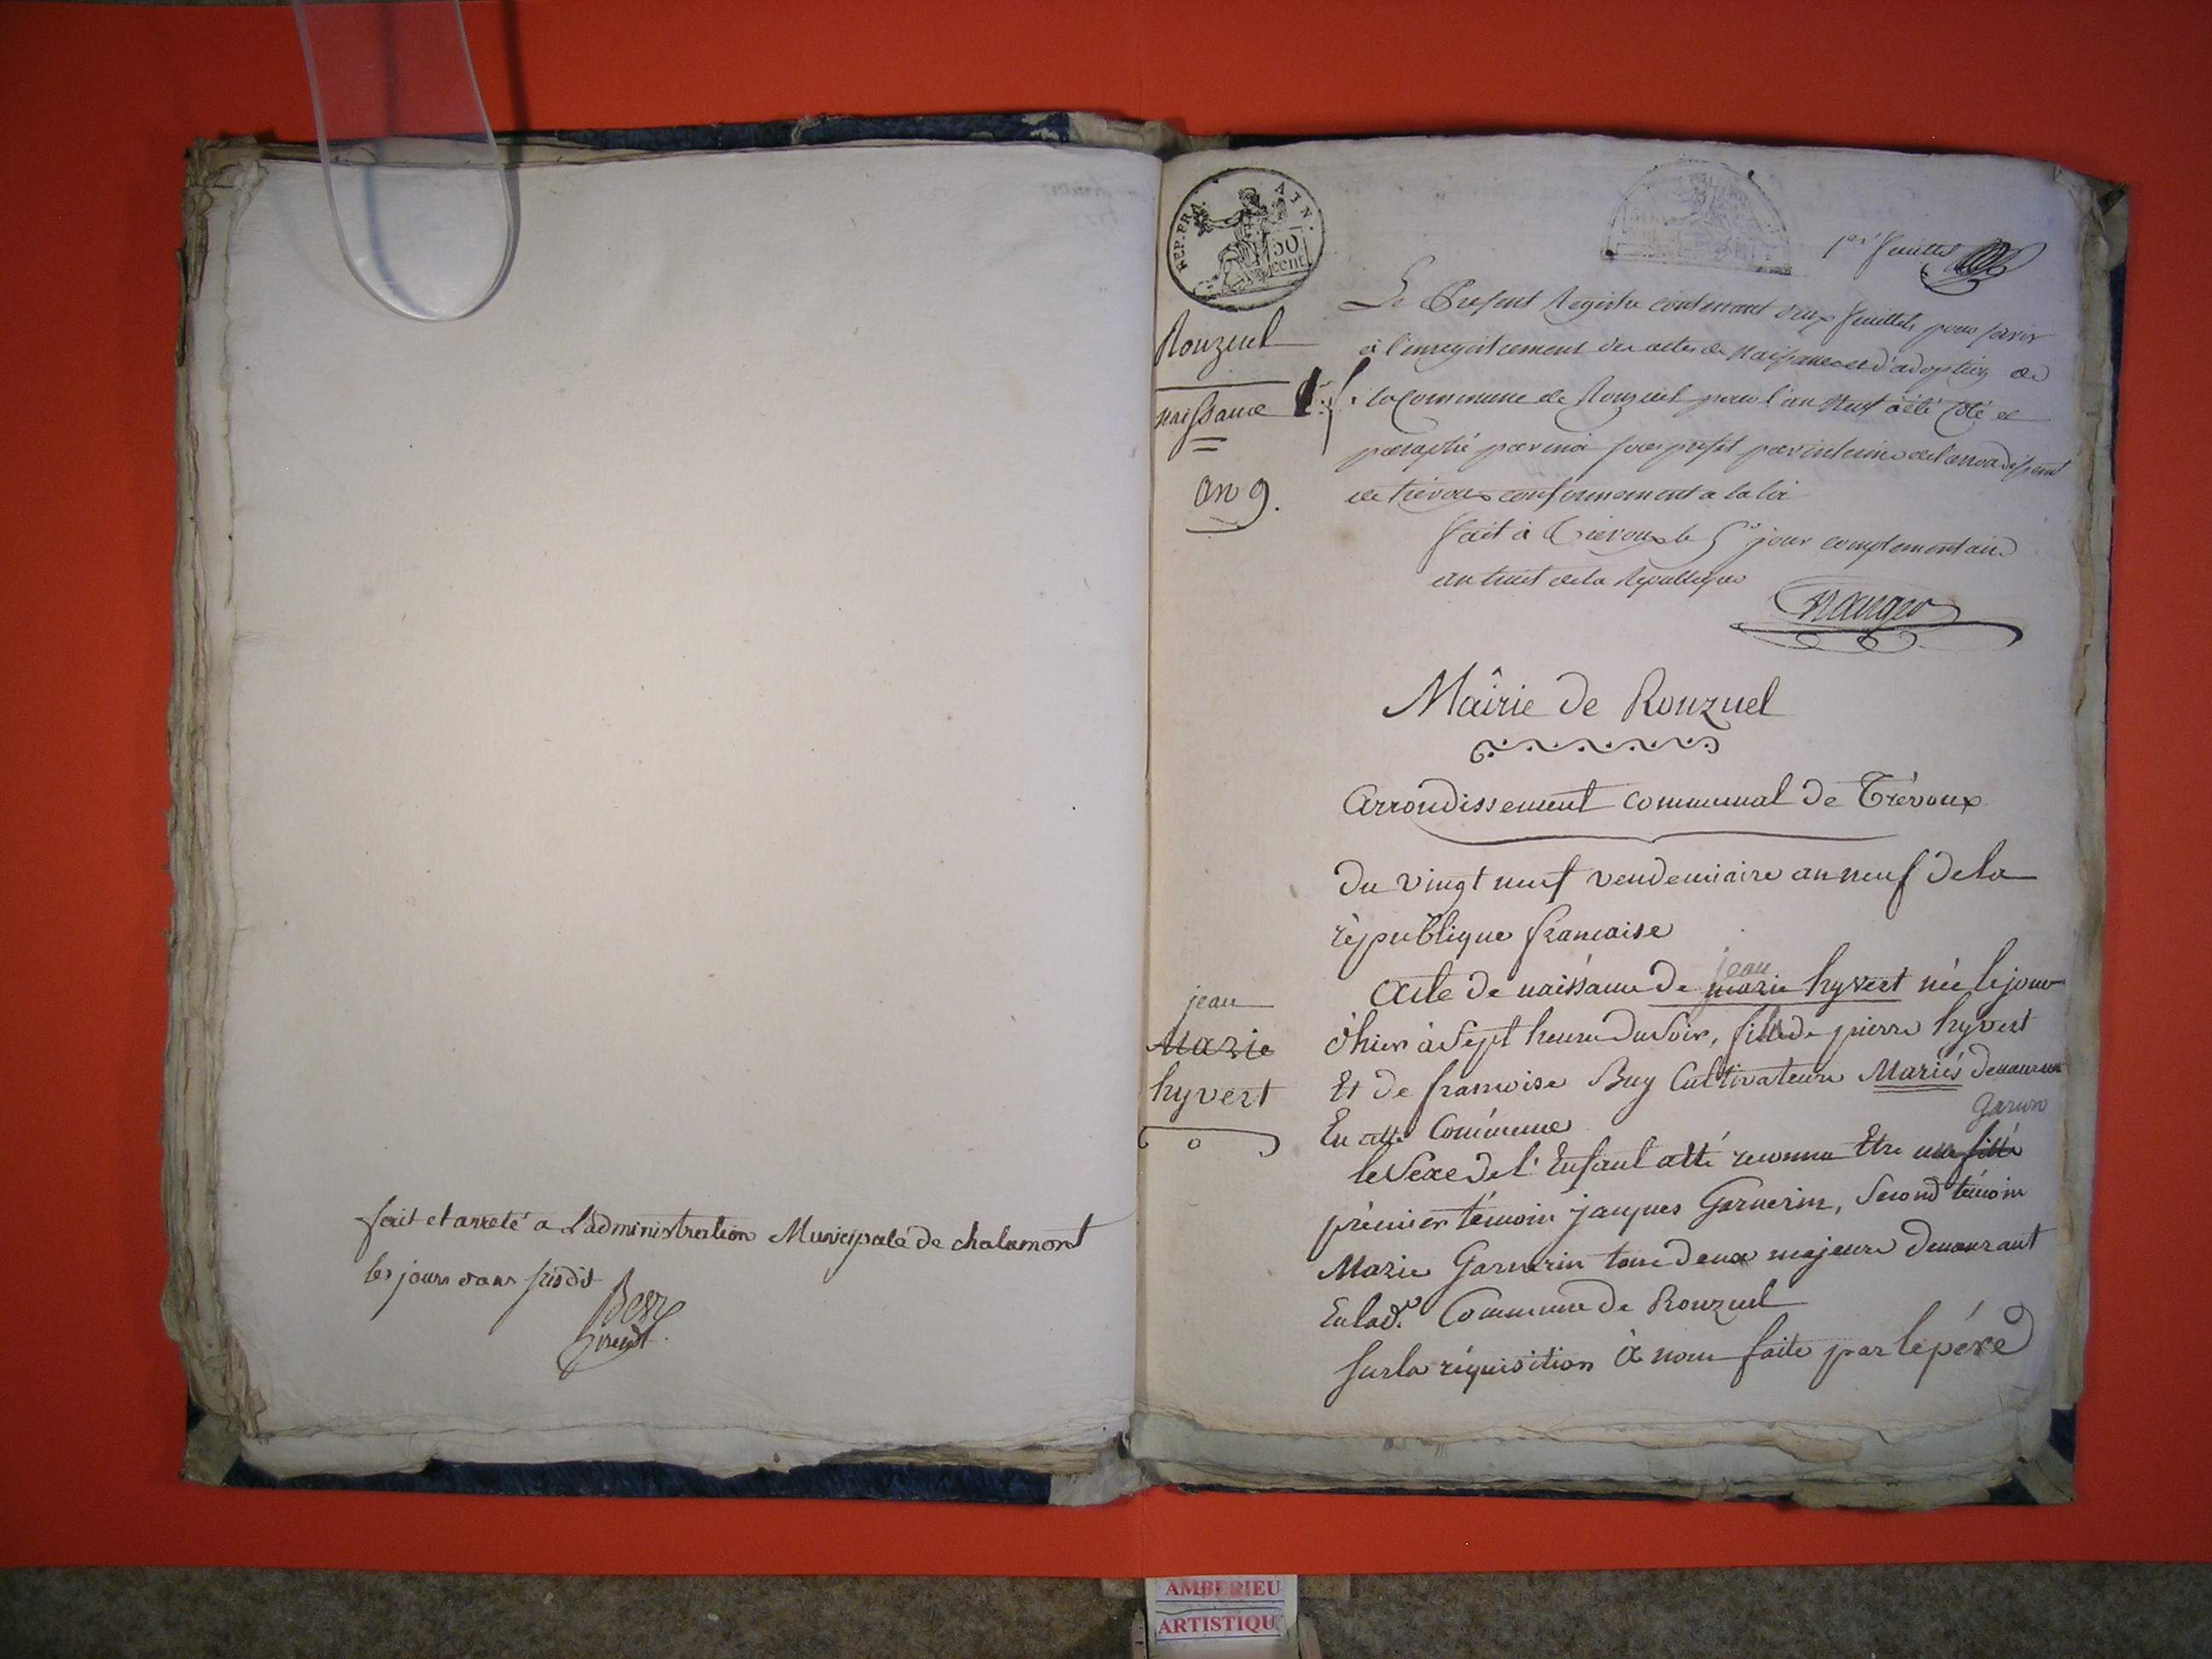 fait et arreté a L'administration Municipale de chalamont
les jours et ans susdit
REP. FRA.
AIN.
50
cent
1er feuillet
Rouzuel
naissance
an 9.
Le Present Registre contenant deux feuillets pour servir
à l'enregistrement des actes de Naissance et d'adoption de
la Commune de Rouzuel pour l'an Neuf a été coté et
paraphé par moi sous prefet par interim de l'arrondissement
de trevoux conformement a la loi
fait à Trevoux le 5e jour complementaire
an huit de la Republique
Mairie de Rouzuel
Arrondissement communal de Trévoux
Du vingt neuf vendemiaire an neuf de la
république francaise
jean
Marie
hyvert
jean
Acte de naissance de marie hyvert née le jour
d'hier à Sept heure du Soir, fille de pierre hyvert
Et de francoise Buy Cultivateurs Mariés demeurant
En cette Commune
garcon
le Sexe de l'Enfant a été reconnu Etre une fille
prémier témoin jacques Garnerin, Second témoin
Marie Garnerin tous deux majeurs demeurant
En lad.e Commune de Rouzuel
Sur la réquisition à nous faite par le pére
AMBERIEU
ARTISTIQU